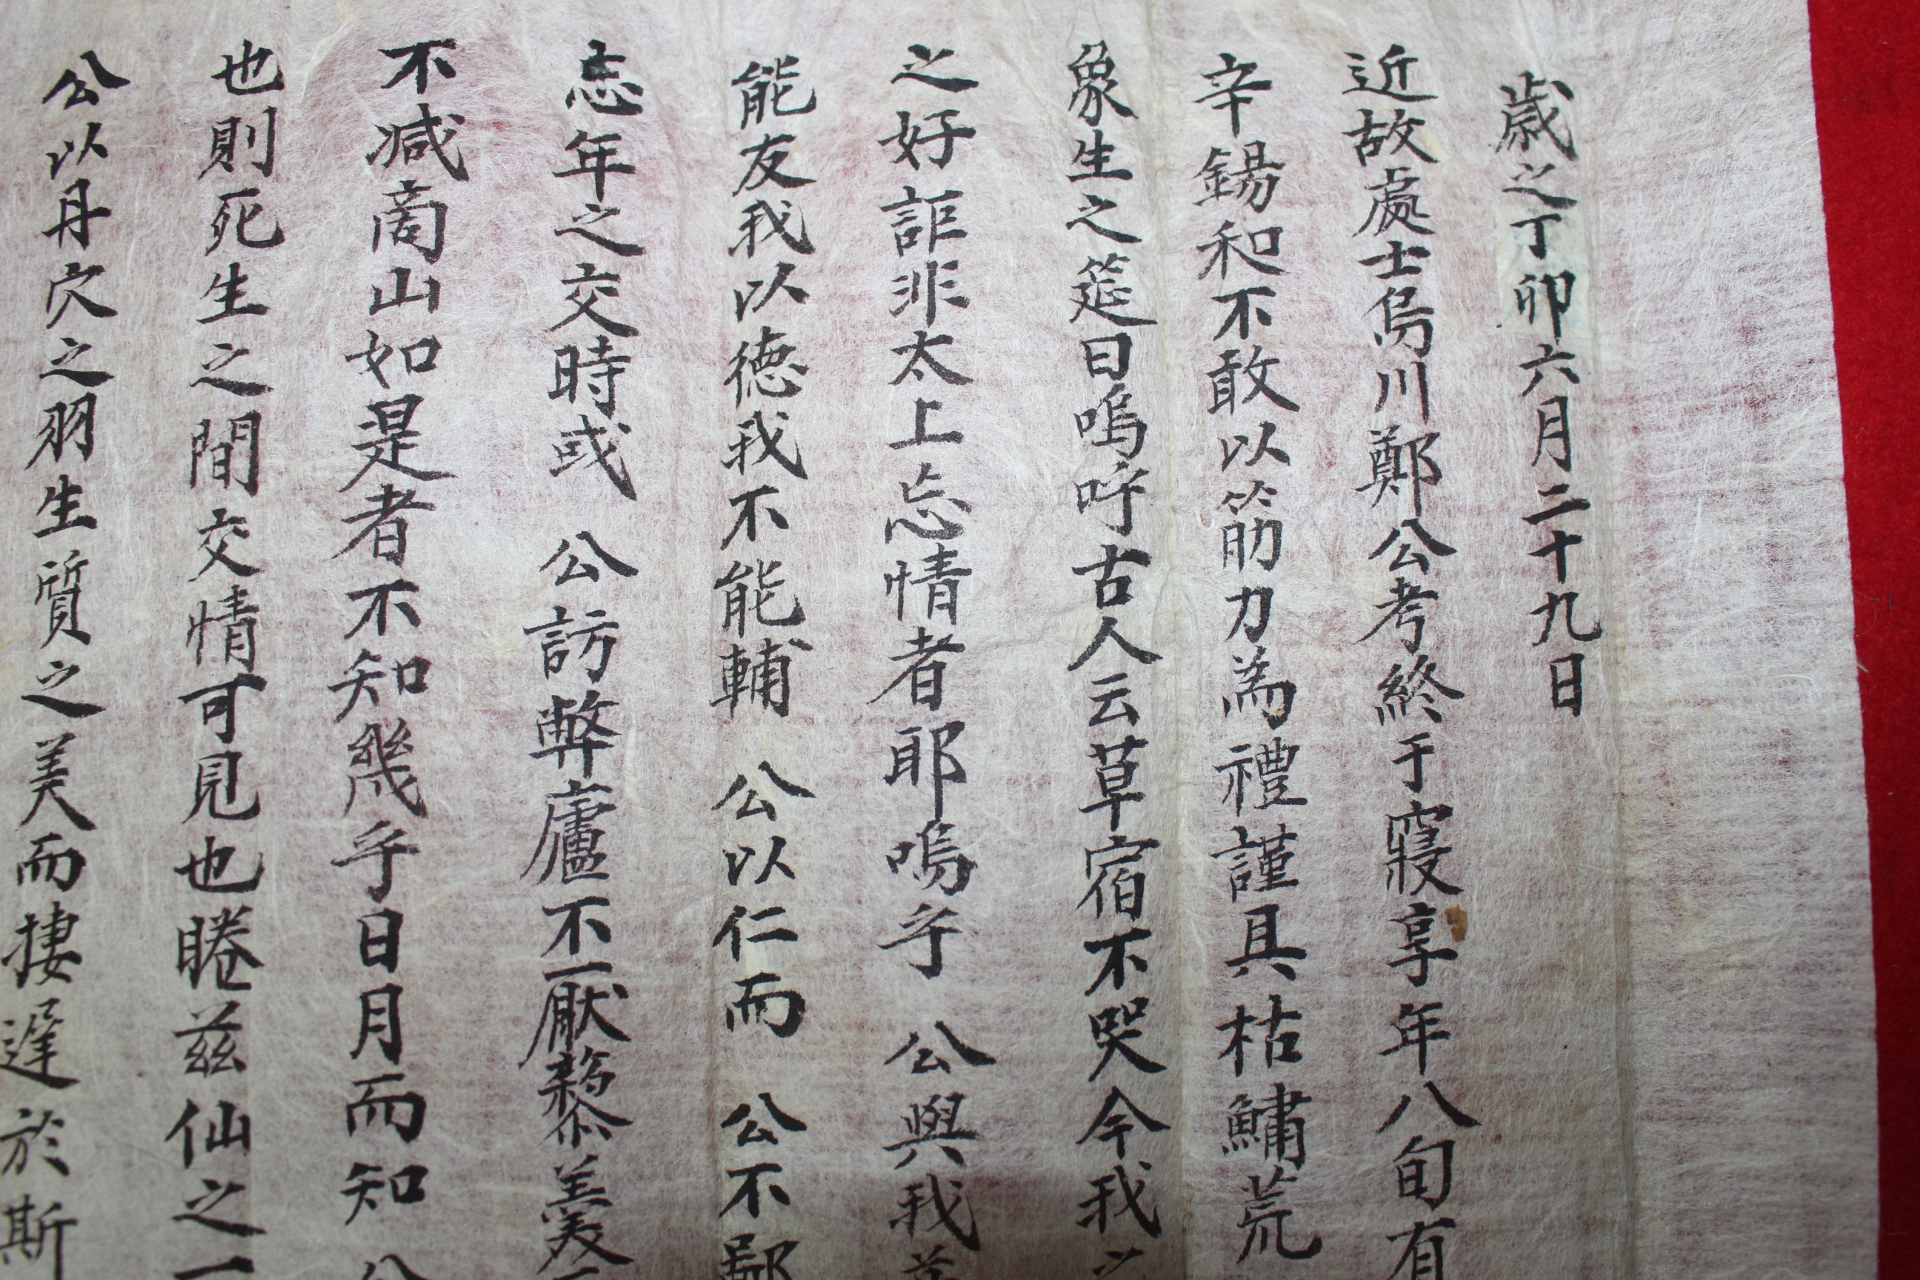 歲之丁卯六月二十九日
近故處士烏川鄭公考終于寢享年八旬有
辛錫和不敢以筋力為禮謹具枯鱐荒
象生之筵曰嗚呼古人云草宿不哭今我之
之好詎非太上忘情者耶嗚乎 公與我
能友我以德我不能輔 公以仁而 公不鄙
忘年之交時或 公訪弊廬不厭藜羹
不減商山如是者不知幾乎日月而知 公
也則死生之間交情可見也睠茲仙之一
公以丹穴之羽生質之美而捿遲於斯